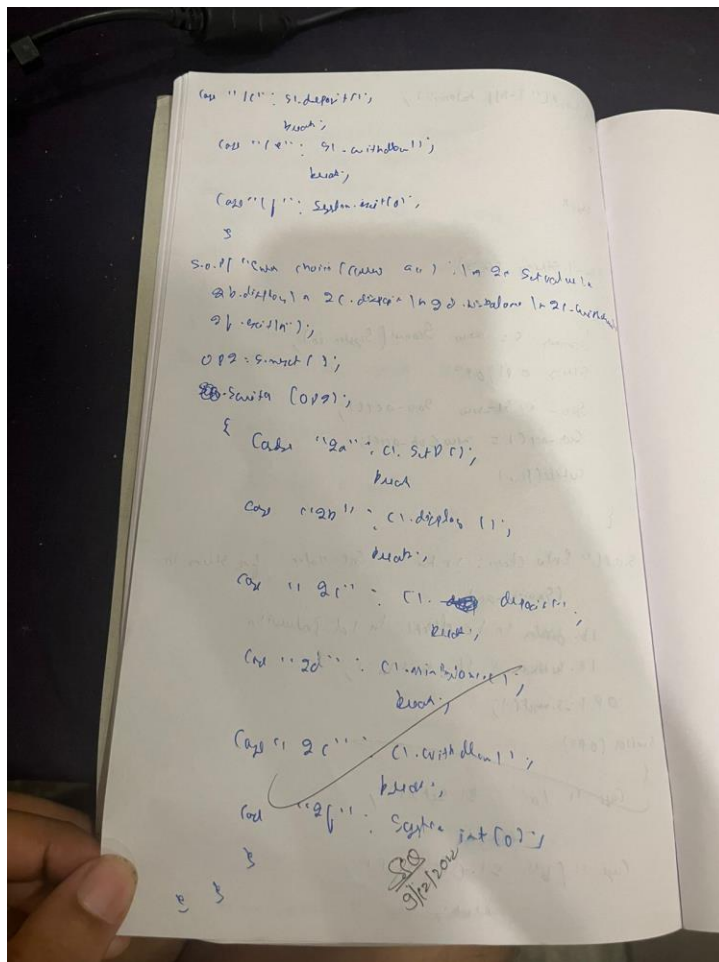 Case "1c" : s1.deposit();
break;
Case "1e" : s1.withdraw();
break;
Case "1f" : System.exit(0);
}
S.o.p("Enter choice (current acc) : \n 2a
2b.display \n 2c.deposit \n 2d. \n 2e.
2f.exit\n");
OP2 = s.next();
Switch (OP2);
{ Case "2a" : c1.SetD();
break
Case "2b" : c1.display();
break;
Case "2c" : c1. deposit();
break;
Case "2d" : c1.
break;
Case "2e" : c1.withdraw();
break;
Case "2f" : System (0);
}
} }
9/12/202